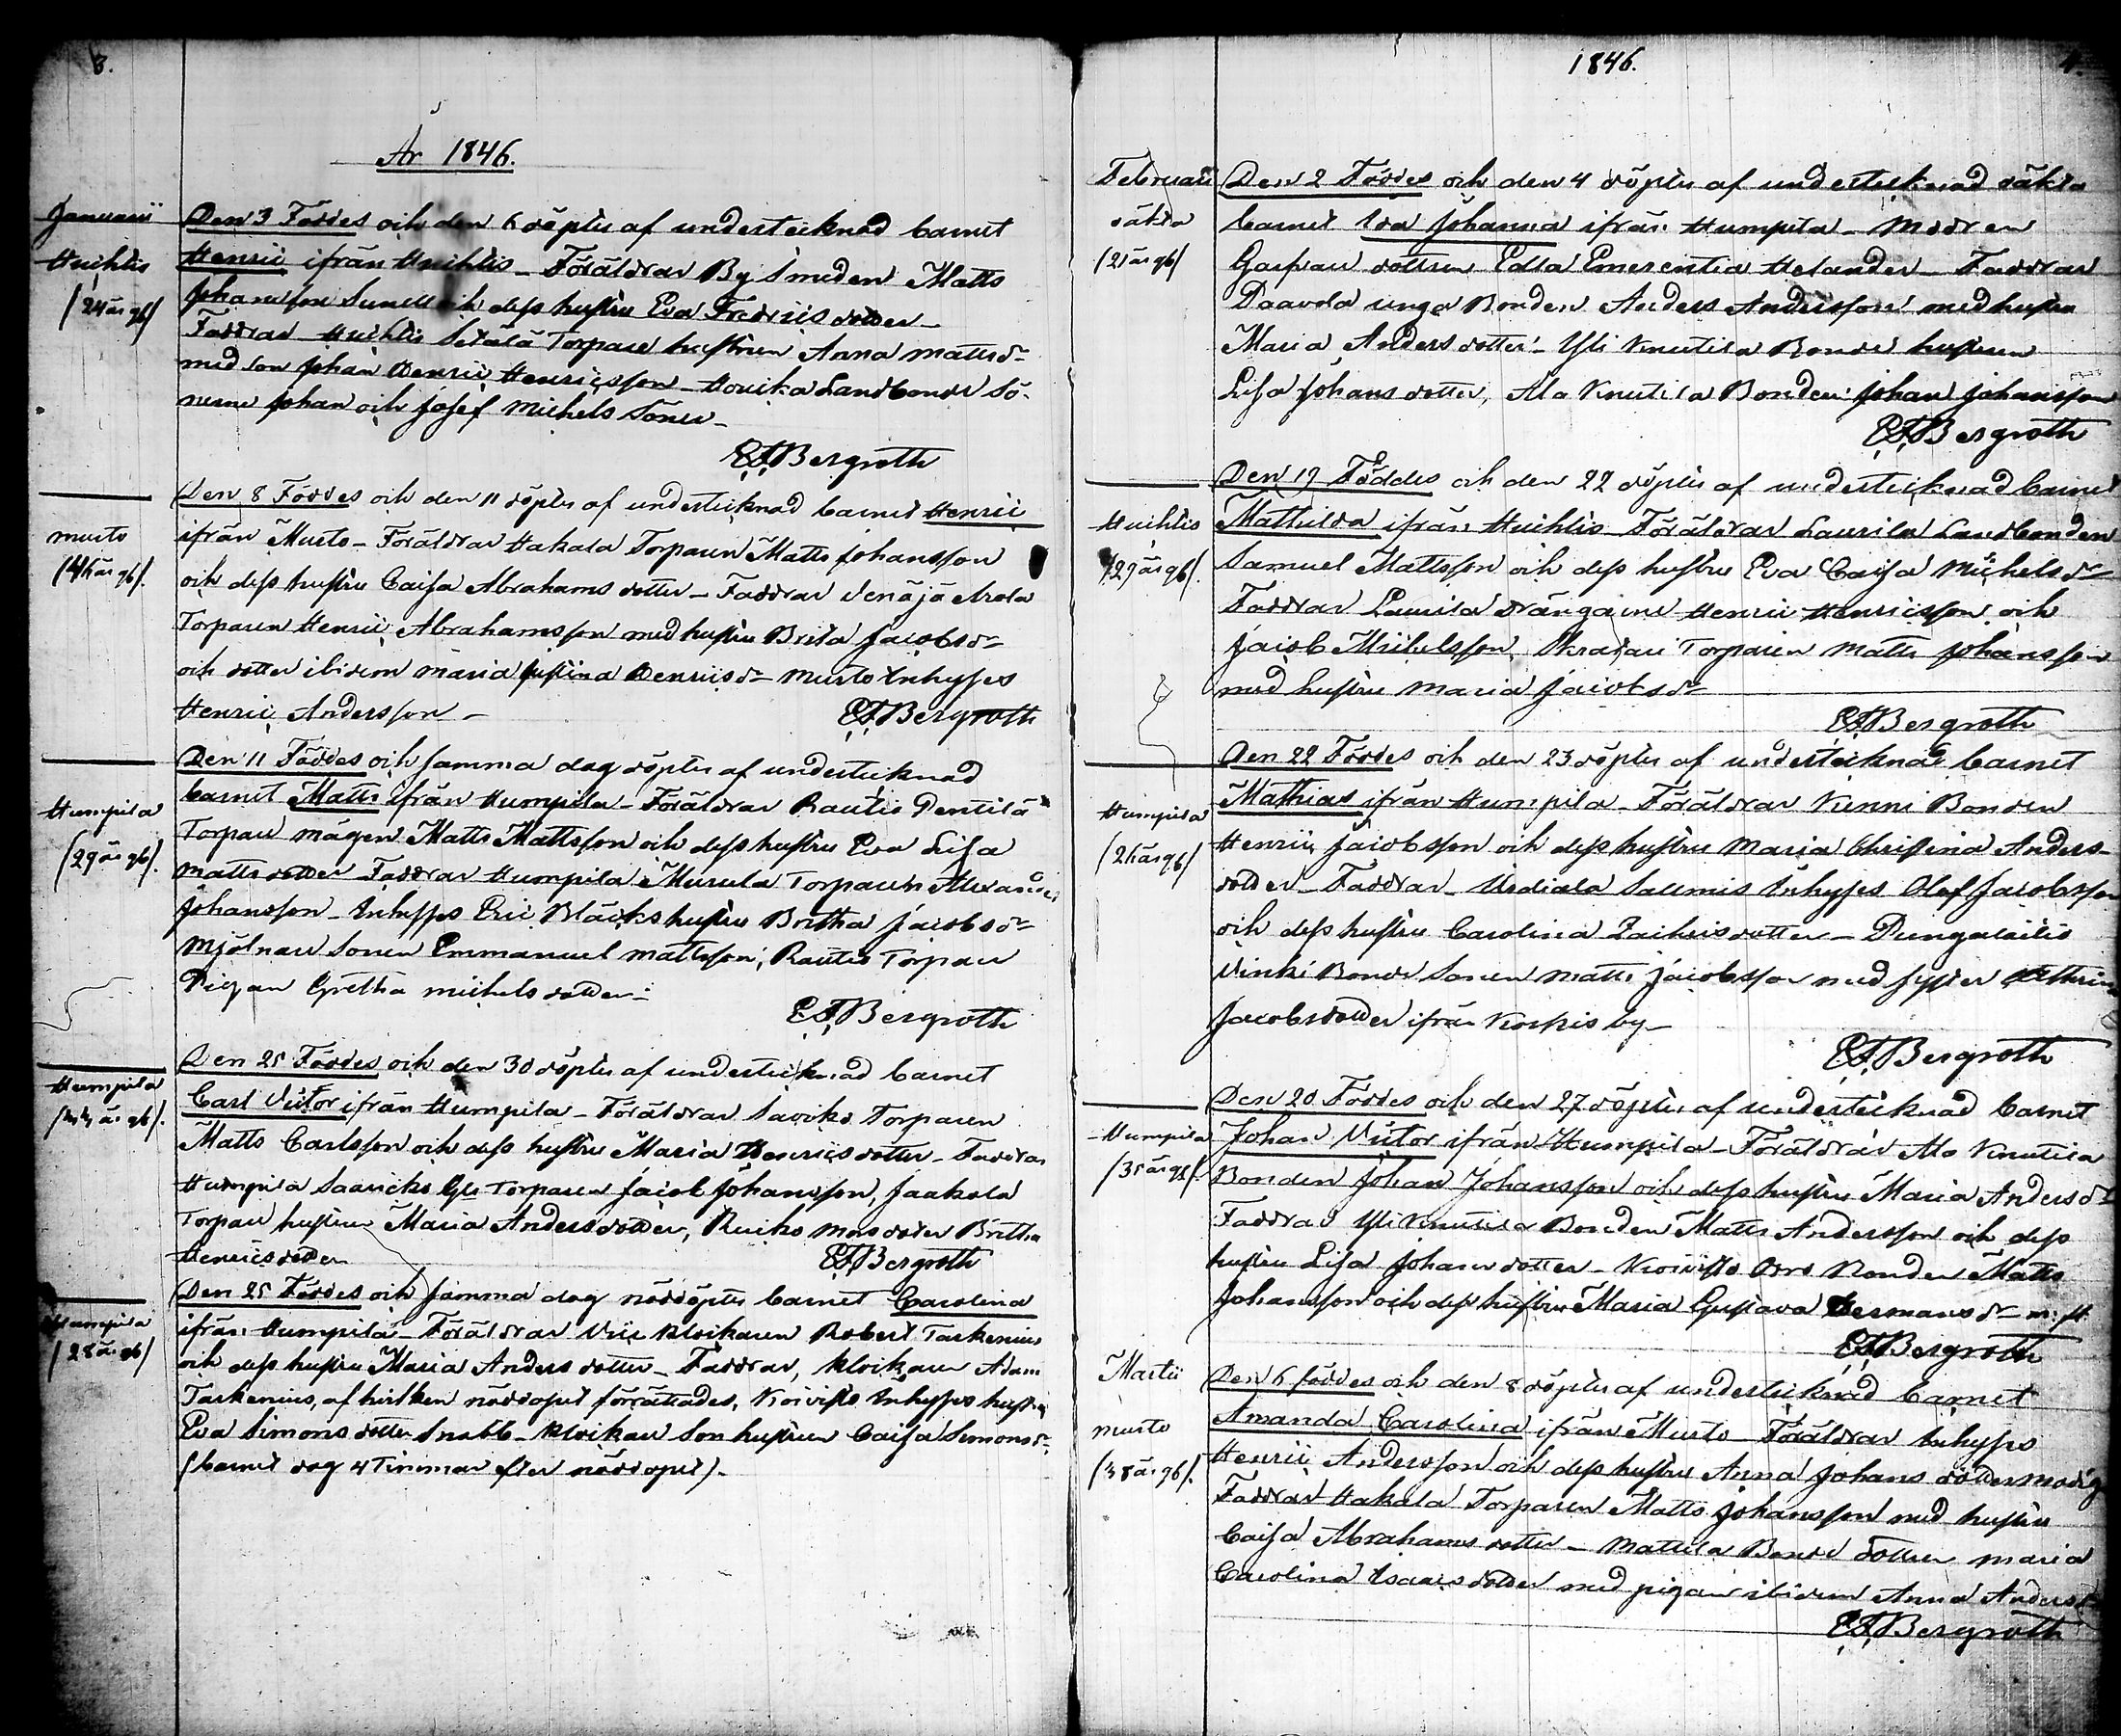 3.
År 1846.
Januarii
Huihtis
/24 år gl/
Den 3 Föddes och den 6 döptes af undertecknad barnet
Henric ifrån Huihtis – Föräldrar By Smeden Matts
Johansson Sunell och dess hustru Eva Fredricsdotter –
Faddrar Huihtis Torpare hustrun Anna Mattsdr
med son Johan Henric Henricsson – Houika Landbonde Sö-
nerne Johan och Josef Michels Söner –
EJBergroth
Murto
Den 8 Föddes och den 11 döptes af undertecknad barnet Henric
ifrån Murto – Föräldrar Hakala Torparen Matts Johansson
och dess hustru Caisa Abrahamsdotter – Faddrar Venäjä
Torparen Henric Abrahamsson med hustru Brita Jacobsdr
och dotter ibidem Maria Justina Henricsdr Murto Inhyses
Henric Andersson –
EJBergroth
Humpila
/29 år gl/.
Den 11 Föddes och samma dag döptes af undertecknad
barnet Matts ifrån Humpila – Föräldrar Rautio Pentilä
Torpare mågen Matts Mattsson och dess hustru Eva Lisa
Mattsdotter – Faddrar Humpila Murula Torparen Alexander
Johansson – Inhyses Eric Bläcks hustru Britha Jacobsdr
Mjölnare Sonen Emmanuel Mattsson, Rautio Torpare
Pigan Gretha Michelsdotter –
EJBergroth
Humpila
Den 25 Föddes och den 30 döptes af undertecknad barnet
Carl Victor ifrån Humpila – Föräldrar Saviko Torparen
Matts Carlsson och dess hustru Maria Henricsdotter – Faddrar
Humpila Torparen Jacob Johansson, Jaakola
Torpare hustrun Maria Andersdotter, dotter Britha
Henricsdotter
EJBergroth
Humpila
/28 år gl/
Den 25 Föddes och samma dag nöddöptes barnet Carolina
ifrån Humpila – Föräldrar Vice Klockaren Robert Tarkenius
och dess hustru Maria Andersdotter – Faddrar, Klockaren Adam
Tarkenius, af hvilken nöddopet förrättades, Koivisto Inhyses hustru
Eva Simonsdotter Snabb – Klockare Son hustrun Caisa Simonsdr
/barnet dog 4 Timmar efter nöddopet/.
1846.
4.
Februarii
oäkta
/21 år gl/
Den 2 Föddes och den 4 döptes af undertecknad oäkta
barnet Ida Johanna ifrån Humpila – Modren
dottren Edla Emerentia Helander – Faddrar
Daavola unga Bonden Anders Andersson med hustru
Maria Andersdotter – Yli Knutila Bonde hustrun
Lisa Johansdotter, Ala Knutila Bonden Johan Johansson
EJBergroth
Huihtis
/29 år gl/.
Den 19 Föddes och den 22 döptes af undertecknad barnet
Mathilda ifrån Huihtis Föräldrar Laurila Landbonden
Samuel Mattsson och dess hustru Eva Caisa Michelsdr
Faddrar Laurila drängarne Henric Henricsson och
Jacob Michelsson, Skradari Torparen Matts Johansson
med hustru Maria Jacobsdr
EJBergroth
Humpila
/26 år gl/
Den 22 Föddes och den 23 döptes af undertecknad barnet
Mathias ifrån Humpila – Föräldrar Kinni Bonden
Henric Jacobsson och dess hustru Maria Christina Anders-
dotter – Faddrar – Urdiala Saumis Inhyses Olof Jacobsson
och dess hustru Carolina Zachrisdotter –
Vinki Bonde Sonen Matts Jacobsson med syster
Jacobsdotter ifrån Korkis by –
EJBergroth
Humpila
/35 år gl/.
Den 20 Föddes och den 27 döptes af undertecknad barnet
Johan Victor ifrån Humpila – Föräldrar Ala Knutila
Bonden Johan Johansson och dess hustru Maria Andersdr
Faddrar Yli Knutila Bonden Matts Andersson och dess
hustru Lisa Johansdotter – Koivisto Orro Bonden Matts
Johansson och dess hustru Maria Gustava Hermansdr
EJBergroth
Martii
Murto
/38 år gl/.
Den 6 föddes och den 8 döptes af undertecknad barnet
Amanda Carolina ifrån Murto – Föräldrar Inhyses
Henric Andersson och dess hustru Anna Johansdotter Modig
Faddrar Hakala Torparen Matts Johansson med hustru
Caisa Abrahamsdotter – Mattila Bonde dottren Maria
Carolina Isaacsdotter med pigan ibidem Anna Andersdr
EJBergroth